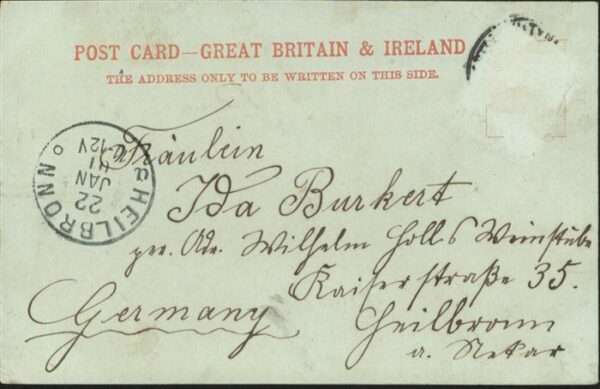 POST CARD—GREAT BRITAIN & IRELAND
THE ADDRESS ONLY TO BE WRITTEN ON THIS SIDE.
Fräulein
Ida Burkert
per. Adr. Wilhelm Holl's Weinstube
Kaiserstraße 35.
Germany Heilbronn
a. Nekar
HEILBRONN
22
JAN
01
12V